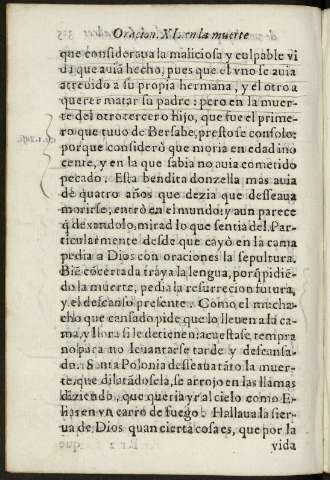 Oracion. XI. en la muerte
que consideraua la maliciosa y culpable vi
da que auia hecho, pues que el vno se auia
atreuido a su propia hermana, y el otro a
querer matar su padre: pero en la muer-
te del otro tercero hijo, que fue el prime-
ro que tuuo de Bersabe, presto se consolo:
porque considerò que moria en edad ino
cente, y en la que sabia no auia cometido
pecado. Esta bendita donzella mas auia
de quatro años que dezia que desseaua
morirse, entrò en el mundo: y aun parece
q̃ dexandolo, mirad lo que sentia del. Par-
ticularmente desde que cayò en la cama
pedia a Dios con oraciones la sepultura.
Biẽ cõcertada traya la lengua, porq̃ pidiẽ-
do la muerte, pedia la resurrecion futura,
y el descanso presente. Como el mucha-
cho que cansado pide que lo lleuen a la ca-
ma, y llora si le detienen: acuestase tempra
no para no leuantarse tarde y descansa-
do. Santa Polonia desseaua tãto la muer-
te, que dilatãdosela, se arrojo en las llamas
diziendo, que queria yr al cielo como E-
lias en vn carro de fuego. Hallaua la sier-
ua de Dios quan cierta cosa es, que por la
vida